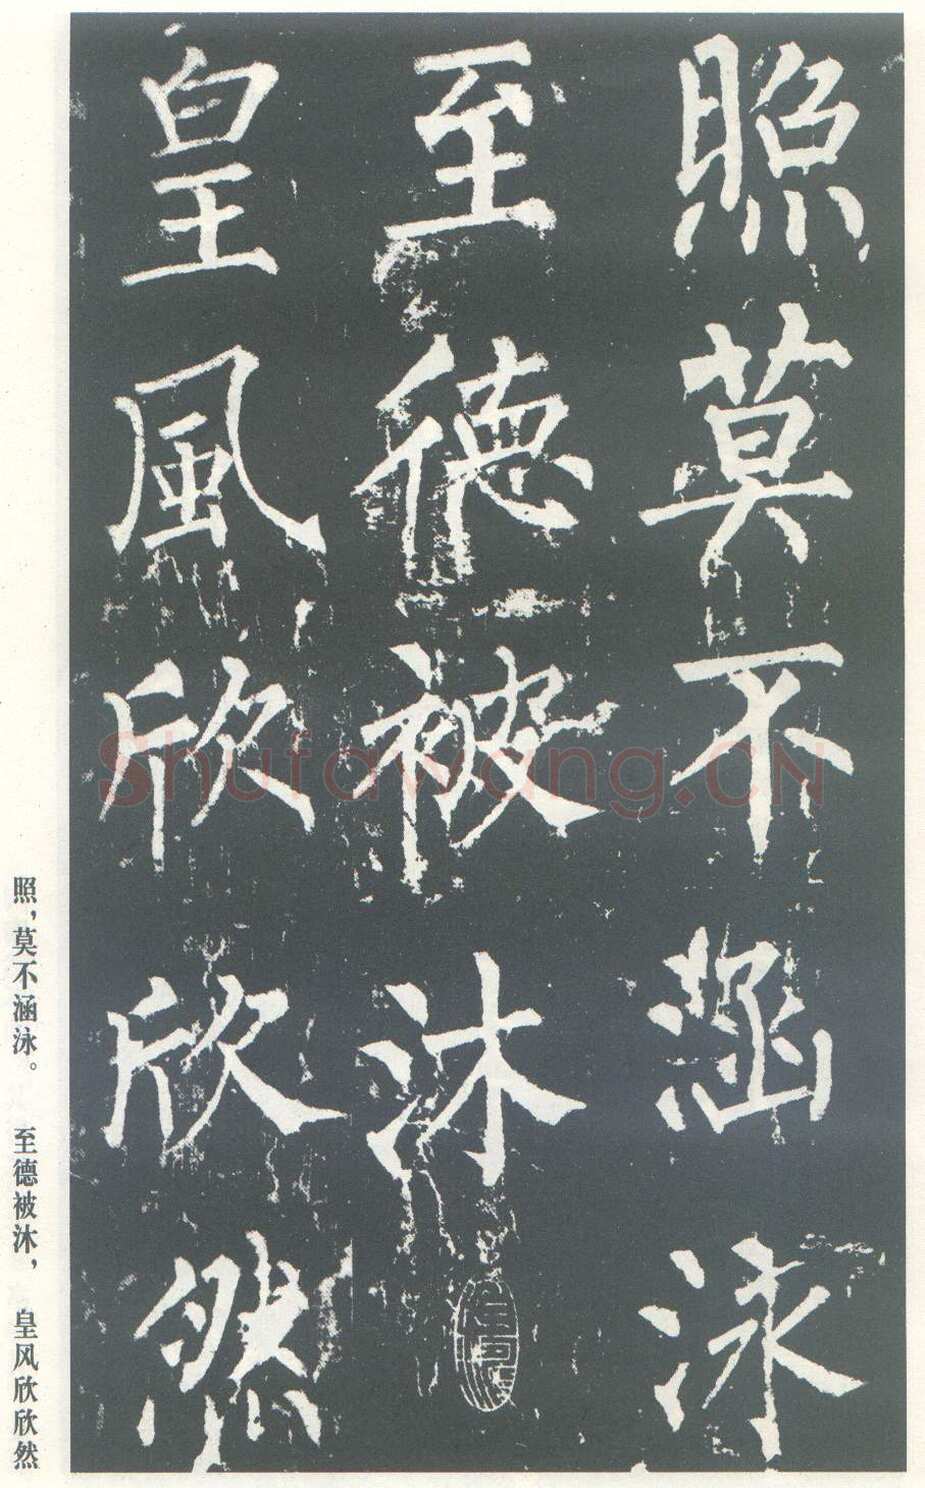 照莫不涵泳
至德被沐
皇風欣欣然
照，莫不涵泳。　至德被沐，　皇风欣欣然
Shufawang.CN